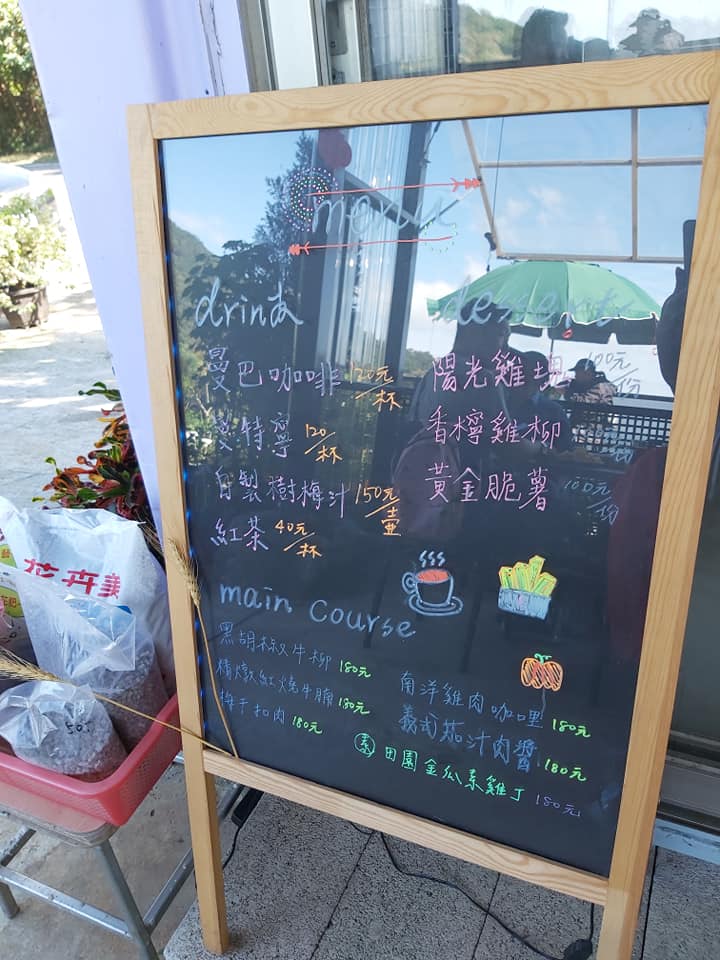 menu
drink
曼巴咖啡 120元/杯
曼特寧 120/杯
自製樹梅汁 150元/壺
紅茶 40元/杯
dessert
陽光雞塊 100元/份
香檸雞柳
黃金脆薯 100元/份
main course
黑胡椒牛柳 180元
精燉紅燒牛腩 180元
梅干扣肉 180元
南洋雞肉咖哩 180元
義式茄汁肉醬 180元
素 田園金瓜素雞丁 180元
花卉美